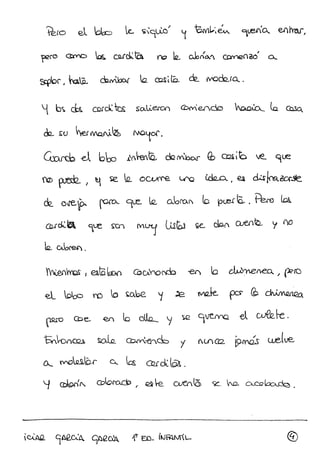 Pero el lobo le siguió y también quería entrar,
pero como los cerditos no le abrían comenzó a
soplar, hasta derribar la casita de madera.
Y los dos cerditos salieron corriendo hacia la casa
de su hermanito mayor.
Cuando el lobo intenta derribar la casita ve que
no puede, y se le ocurre una idea, es disfrazarse
de oveja para que le abran la puerta. Pero los
cerditos que son muy listos se dan cuenta y no
le abren.
Mientras, estaban cocinando en la chimenea, pero
el lobo no lo sabe y se mete por la chimenea
pero cae en la olla y se quema el culete.
Entonces sale corriendo y nunca jamás vuelve
a molestar a los cerditos.
Y colorín colorado, este cuento se ha acabado.
ICIAR GARCÍA GARCÍA 1º ED. INFANTIL. 4